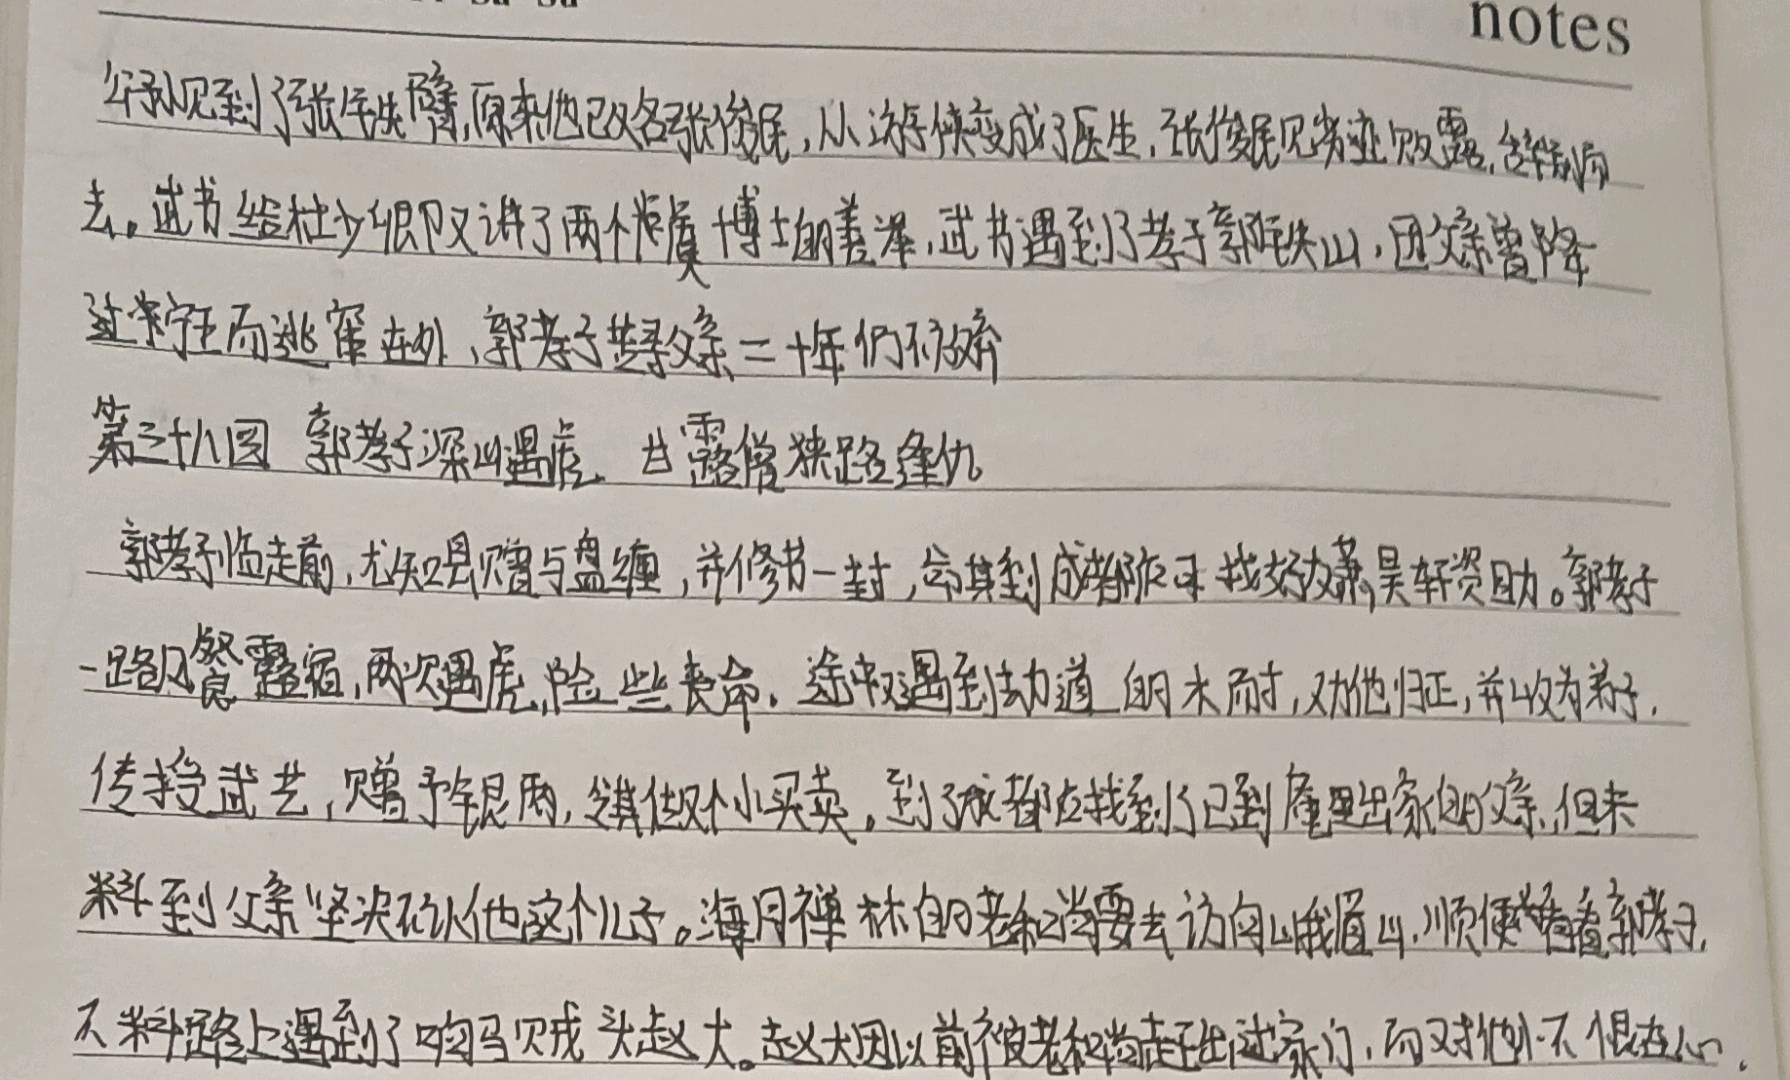 notes
见到了张铁臂,原来他已改名张俊民,从游侠变成了医生,张俊民见劣迹败露,辞别而
去。武书给杜少卿又讲了两个虞博士的善举,武书遇到了孝子郭铁山,因父亲曾降
过宁王而逃窜在外,郭孝子寻父亲二十年们不放弃
第三十八回 郭孝子深山遇虎 甘露僧狭路逢仇
郭孝子临走前,尤知县赠与盘缠,并修书一封,令其到成都府寻找好友萧昊轩资助。郭孝子
一路风餐露宿,两次遇虎,险些丧命。途中又遇到劫道的木耐,劝他归正,并收为弟子,
传授武艺,赠予银两,让其做个小买卖。到了成都府找到了已到庵里出家的父亲,但未
料到父亲坚决不认他这个儿子。海月禅林的老和尚要去访问峨眉山,顺便看看郭孝子,
不料路上遇到了响马贼头赵大。赵大因以前被老和尚赶出过家门,而对他怀恨在心,